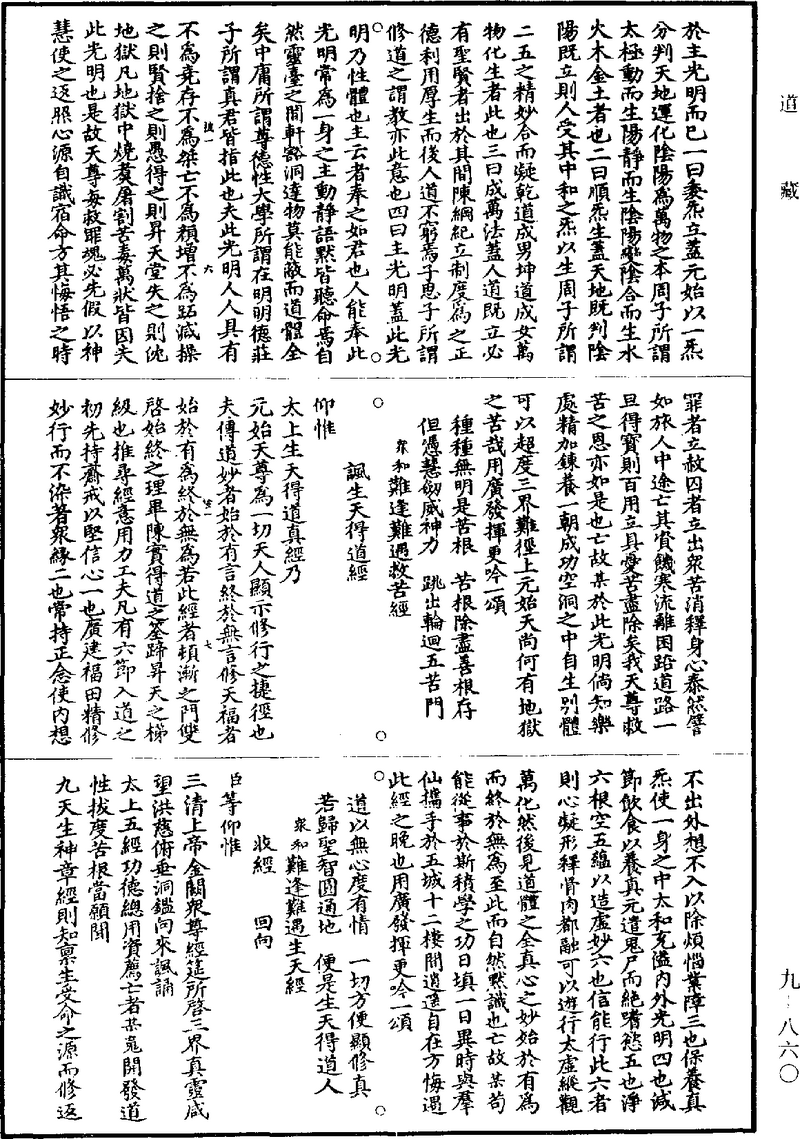 道藏
於主光明而已一曰委炁立蓋元始以一炁
分判天地運化陰陽為萬物之本周子所謂
太極動而生陽靜而生陰陽變陰合而生水
火木金土者也二曰順炁生蓋天地既判陰
陽既立則人受其中和之炁以生周子所謂
二五之精妙合而凝乾道成男坤道成女萬
物化生者此也三曰成萬法蓋人道既立必
有聖賢者出於其間陳綱紀立制度為之正
德利用厚生而後人道不窮焉子思子所謂
修道之謂教亦此意也四曰主光明蓋此光
明乃性體也主云者奉之如君也人能奉此
光明常為一身之主動靜語默皆聽命焉自
然靈臺之間軒豁洞達物莫能蔽而道體全
矣中庸所謂尊德性大學所謂在明明德莊
子所謂真君皆指此也夫此光明人人具有
六
不為堯存不為桀亡不為顏增不為跖減操
之則賢捨之則愚得之則昇天堂失之則沈
地獄凡地獄中燒煮屠割苦毒萬狀皆因失
此光明也是故天尊每救罪魂必先假以神
慧使之返照心源自識宿命方其悔悟之時
罪者立赦囚者立出衆苦消釋身心泰然譬
如旅人中途亡其貲饑寒流離困踣道路一
旦得寶則百用立具憂苦盡除矣我天尊救
苦之恩亦如是也亡故某於此光明倘知樂
處精加鍊養一朝成功空洞之中自生別體
可以超度三界難徑上元始天尚何有地獄
之苦哉用廣發揮更吟一頌
種種無明是苦根　苦根除盡善根存
但憑慧劒威神力　跳出輪迴五苦門
衆和難逢難遇救苦經
諷生天得道經
仰惟
太上生天得道真經乃
元始天尊為一切天人顯示修行之捷徑也
夫傳道妙者始於有言終於無言修天福者
七
始於有為終於無為若此經者頓漸之門雙
啓始終之理畢陳實得道之筌蹄昇天之梯
級也推尋經意用力工夫凡有六節入道之
初先持齋戒以堅信心一也廣建福田精修
妙行而不染著衆緣二也常持正念使內想
不出外想不入以除煩惱業障三也保養真
炁使一身之中太和充溢內外光明四也減
節飲食以養真元遣鬼尸而絕嗜慾五也淨
六根空五蘊以造虛妙六也信能行此六者
則心凝形釋骨肉都融可以遊行太虛縱觀
萬化然後見道體之全真心之妙始於有為
而終於無為至此而自然默識也亡故某苟
能從事於斯積學之功日填一日異時與羣
仙攜手於五城十二樓間逍遥自在方悔遇
此經之晚也用廣發揮更吟一頌
道以無心度有情　一切方便顯修真
若歸聖智圓通地　便是生天得道人
衆和難逢難遇生天經
收經　回向
臣等仰惟
三清上帝金闕衆尊經筵所啓三界真靈咸
望洪慈俯垂洞鑑向來諷誦
太上五經功德總用資薦亡者某䰟開發道
性拔度苦根當願聞
九天生神章經則知稟生受命之源而修返
九－八六〇